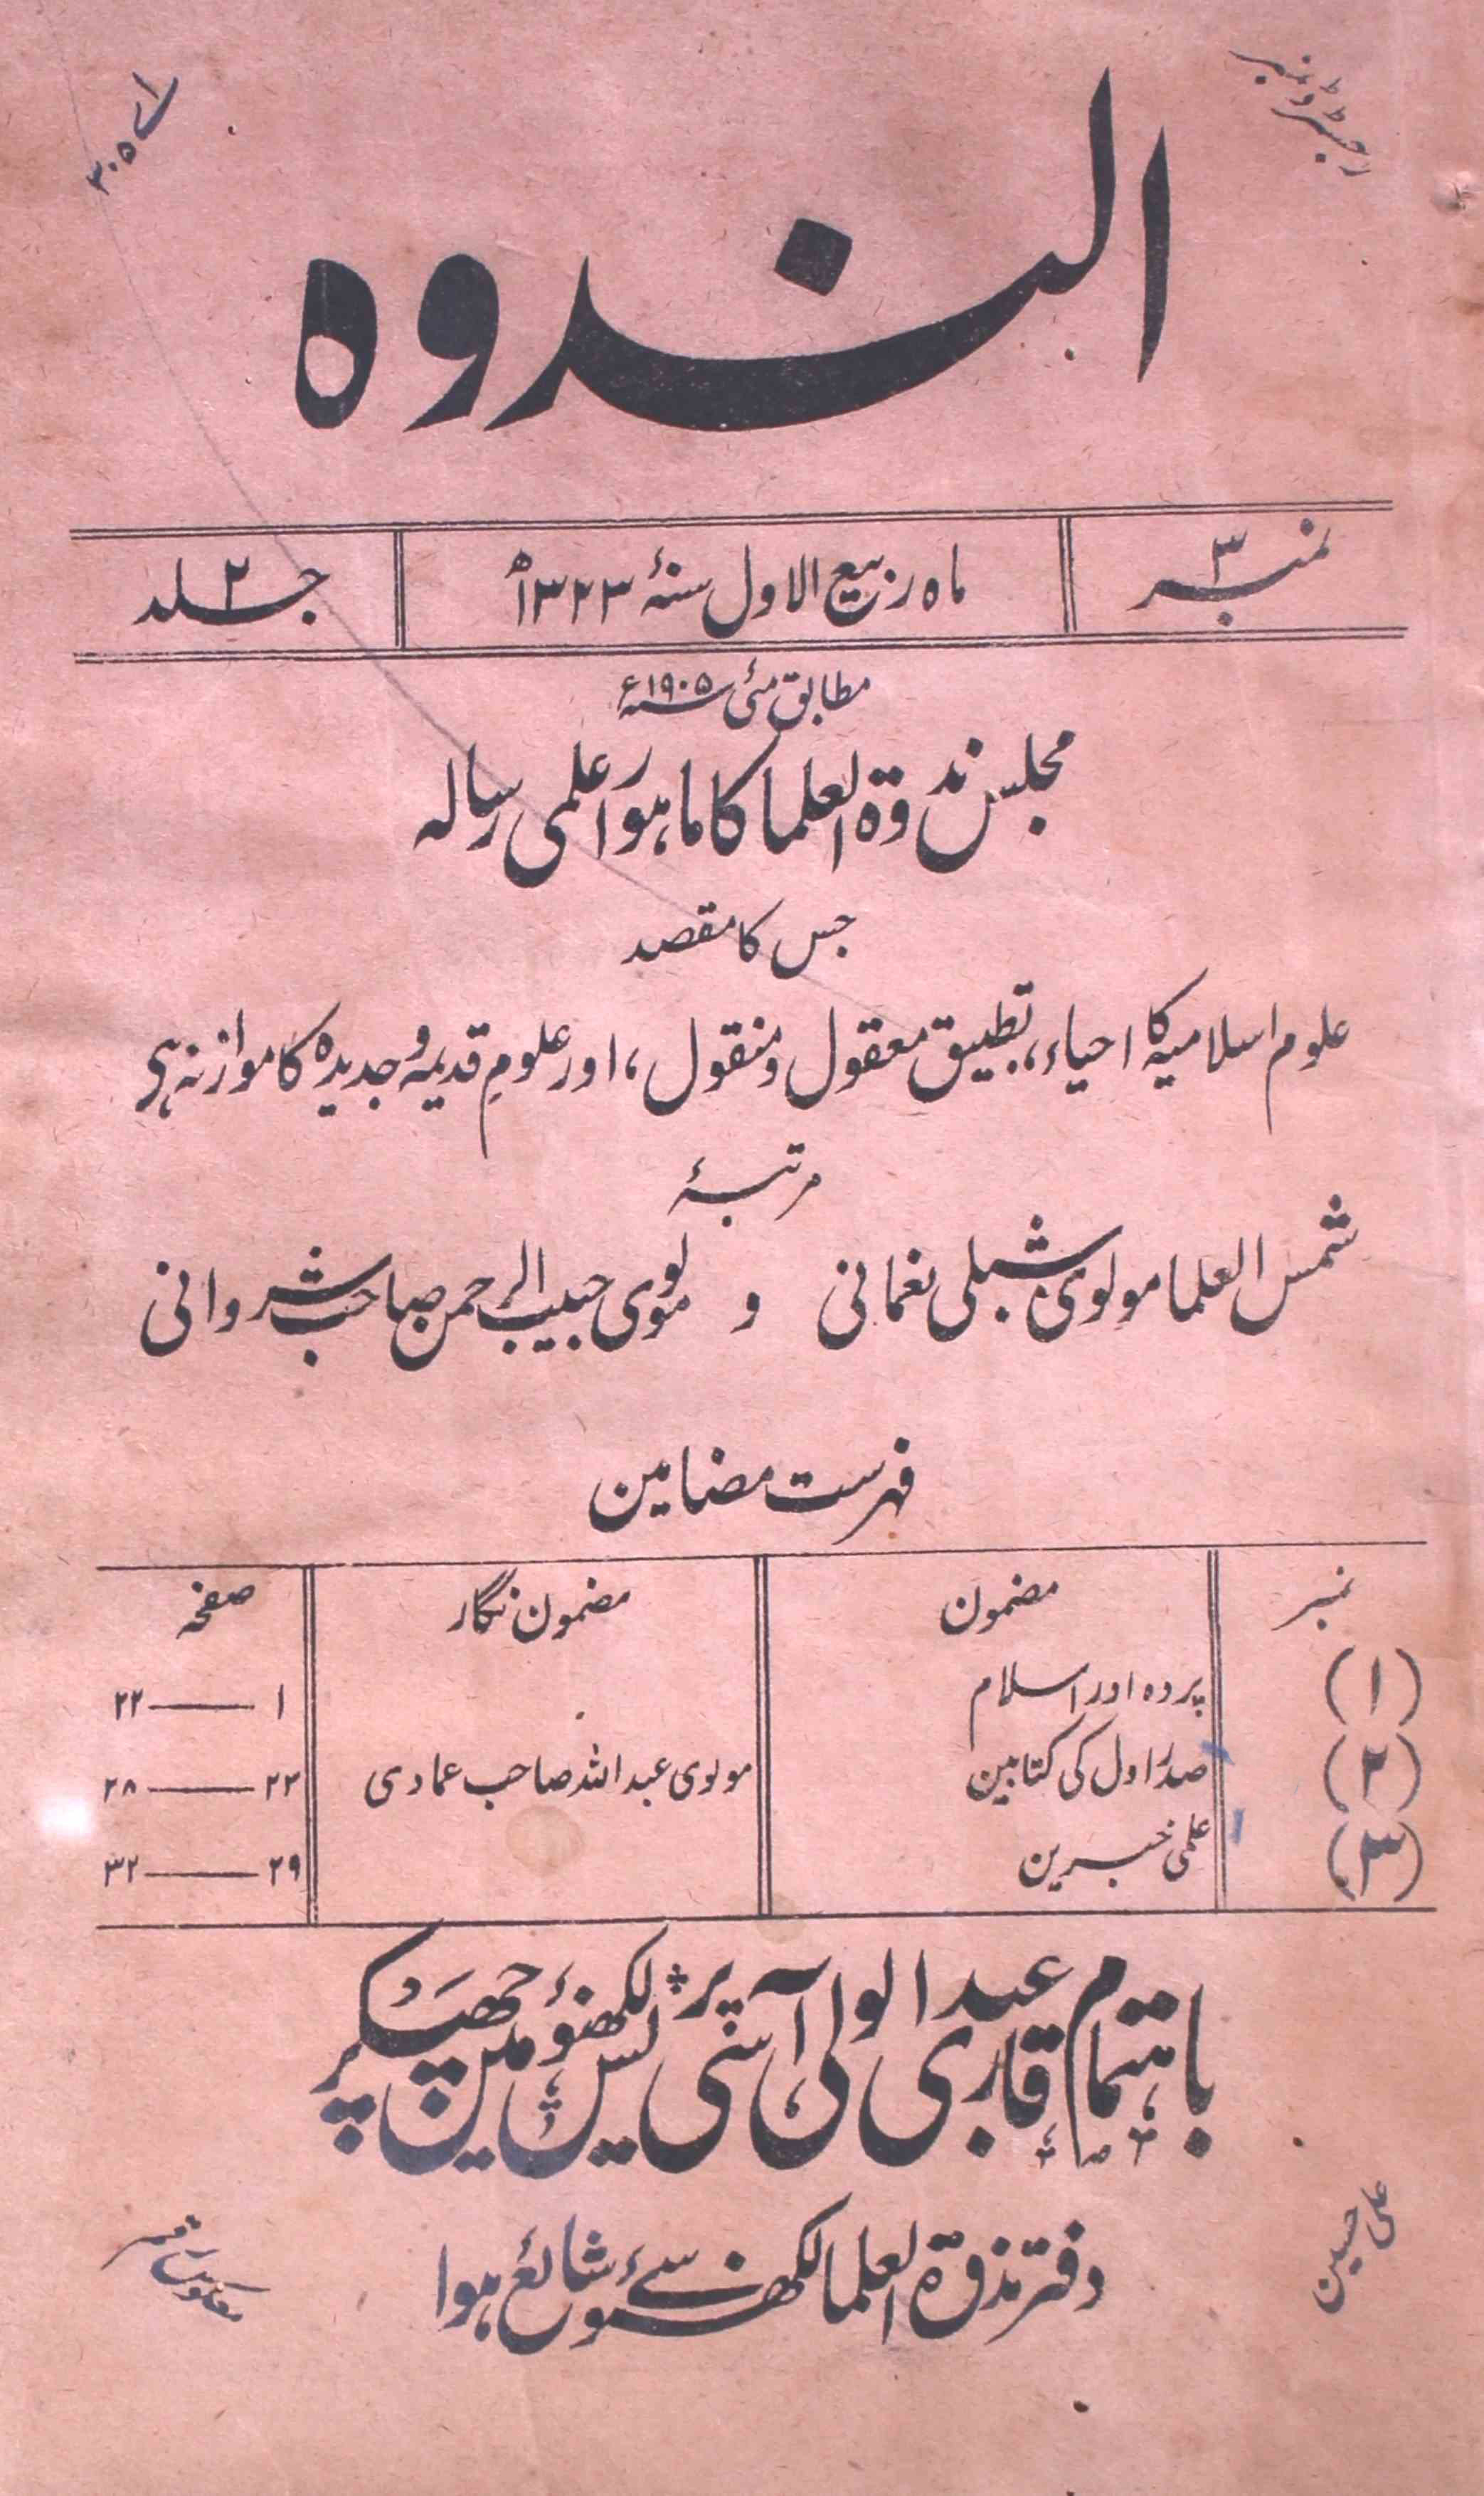 رجسٹرڈ نمبر
اے ۳۰۵
الندوہ
نمبر ۳
ماہ ربیع الاول سنہٴ ۱۳۲۳ھ
جلد ۲
مطابق مئی سنہ ۱۹۰۵ء
مجلس ندوۃ العلما کا ماہوار علمی رسالہ
جس کا مقصد
علوم اسلامیہ کا احیاء، تطبیق معقول و منقول، اور علومِ قدیمہ و جدیدہ کا موازنہ ہی
مرتبۂ
شمس العلما مولوی شبلی نعمانی و مولوی حبیب الرحمن صاحب شروانی
فہرست مضامین
نمبر مضمون مضمون نگار صفحہ
(۱) پردہ اور اسلام ۱ — ۲۲
(۲) صدر اول کی کتابین مولوی عبد اللہ صاحب عمادی ۲۲ — ۲۸
(۳) علمی خبرین ۲۹ — ۳۲
باہتمام قاری عبد الولی آسی پریس لکھنؤ مین چھپکر
دفتر ندوۃ العلما لکھنؤ سے شائع ہوا
علی حسین